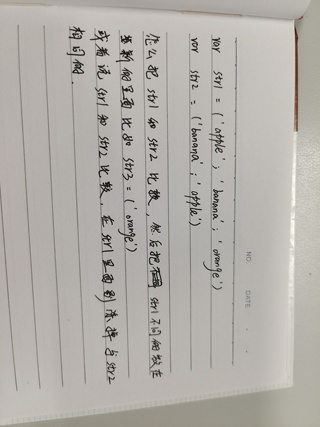 NO.
DATE
var str1 = ('apple', 'banana', 'orange')
var str2 = ('banana', 'apple')
怎么把str1和str2比较，然后把str1不同的放在
新的里面比如str3 = ('orange')
或者说str1和str2比较，在str1里面剔除掉与str2
相同的.